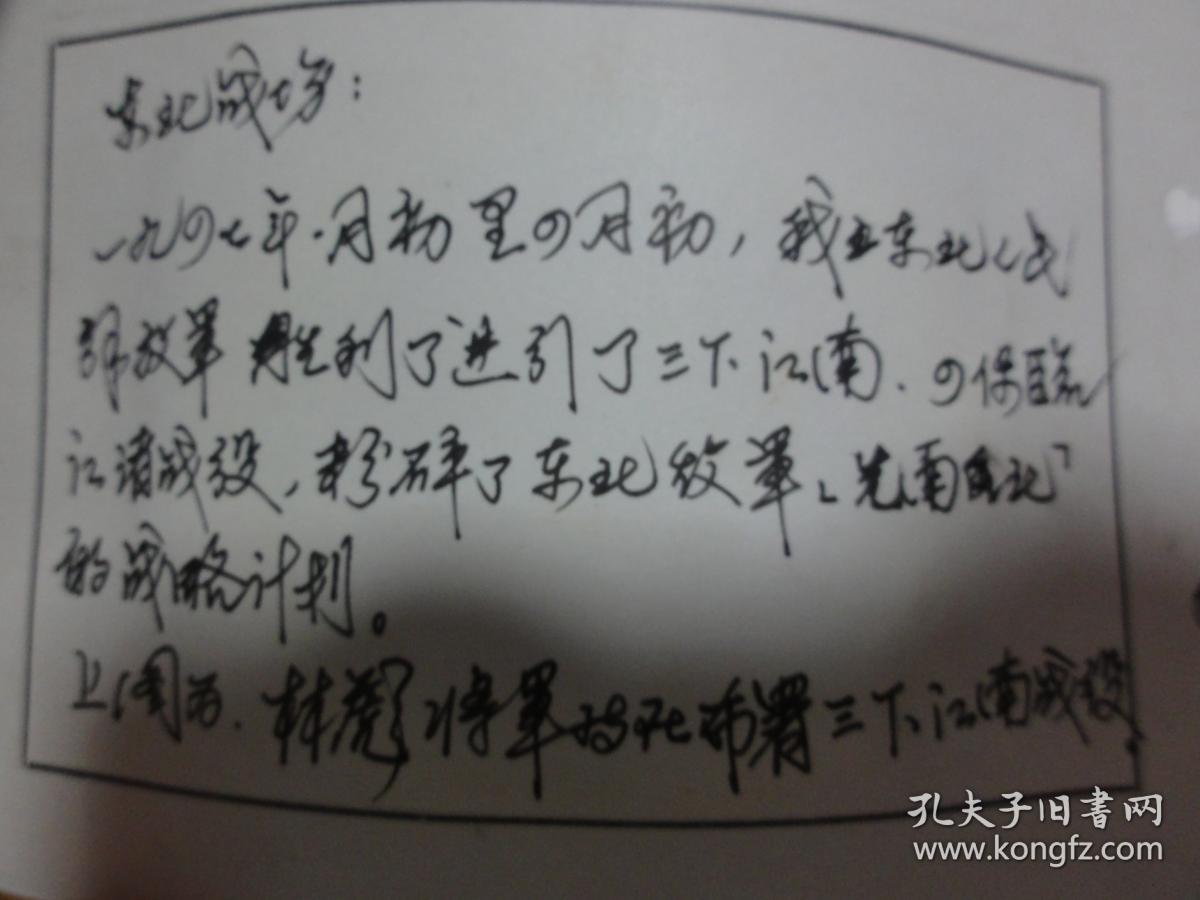 东北战场：
一九四七年一月初至四月初，我在东北人民
解放军胜利了进引了三下江南、四保临
江诸战役，粉碎了东北敌军「先南后北」
的战略计划。
上图为、林彪将军在布署三下江南战役。
孔夫子旧書网
www.kongfz.com